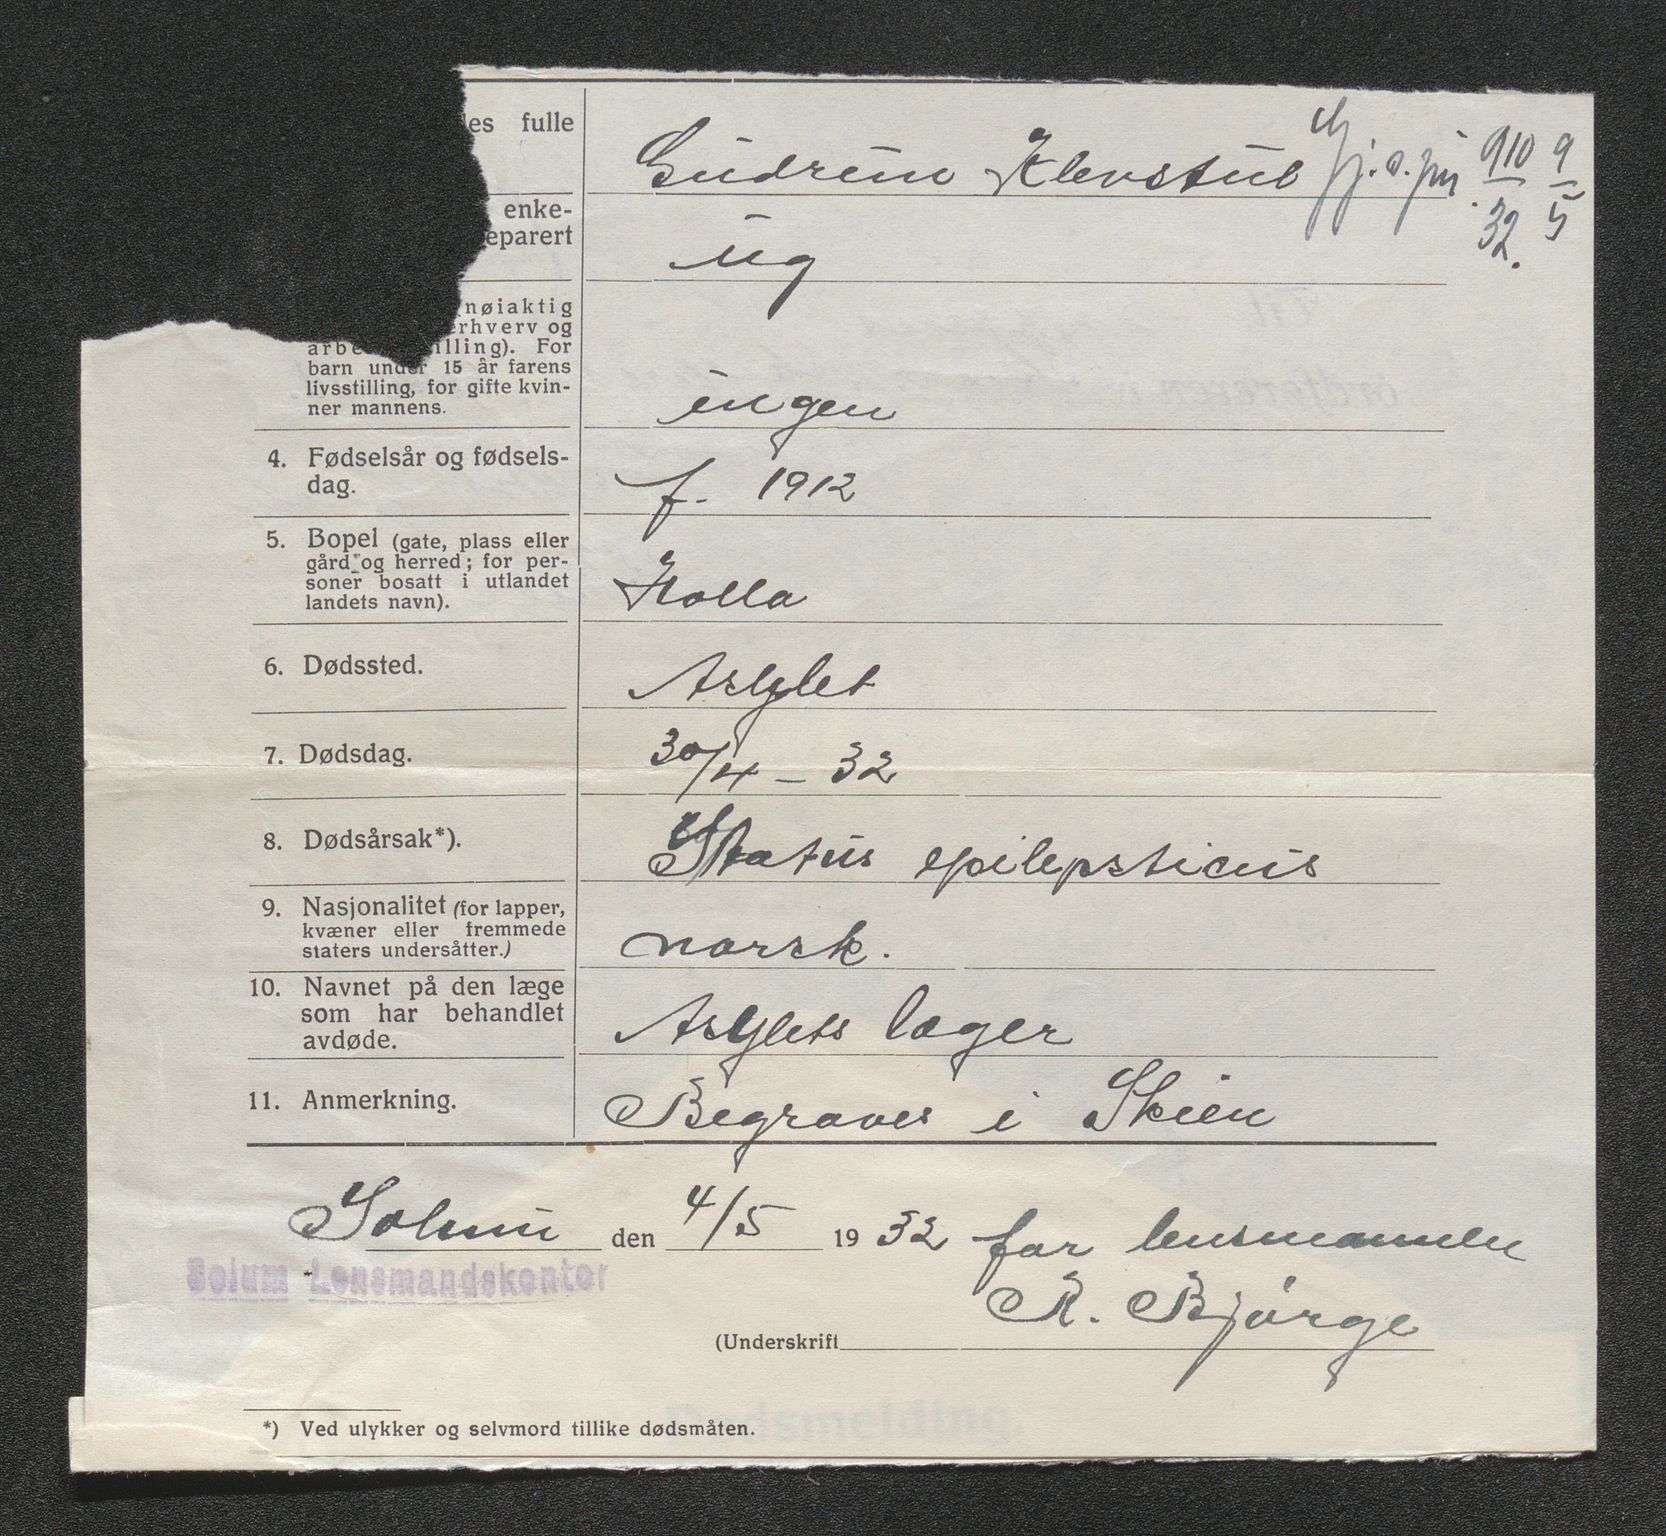 les fulle
Gudrun Klevstul
910 9
32. 5
enke-
eparert
ug
nøiaktig
erhverv og
arbe illing). For
barn under 15 år farens
livsstilling, for gifte kvin-
ner mannens.
ingen
4. Fødselsår og fødsels-
dag.
f. 1912
5. Bopel (gate, plass eller
gård og herred; for per-
soner bosatt i utlandet
landets navn).
Holla
6. Dødssted.
Asylet
7. Dødsdag.
30/4 – 32
8. Dødsårsak*).
Status epilepsticus
9. Nasjonalitet (for lapper,
kvæner eller fremmede
staters undersåtter.)
norsk.
10. Navnet på den læge
som har behandlet
avdøde.
Asylets læger
11. Anmerkning.
Begraves i Skien
Solum den 4/5 1932 for lensmannen
Solum Lensmandskontor
R. Bjørge
(Underskrift
*) Ved ulykker og selvmord tillike dødsmåten.